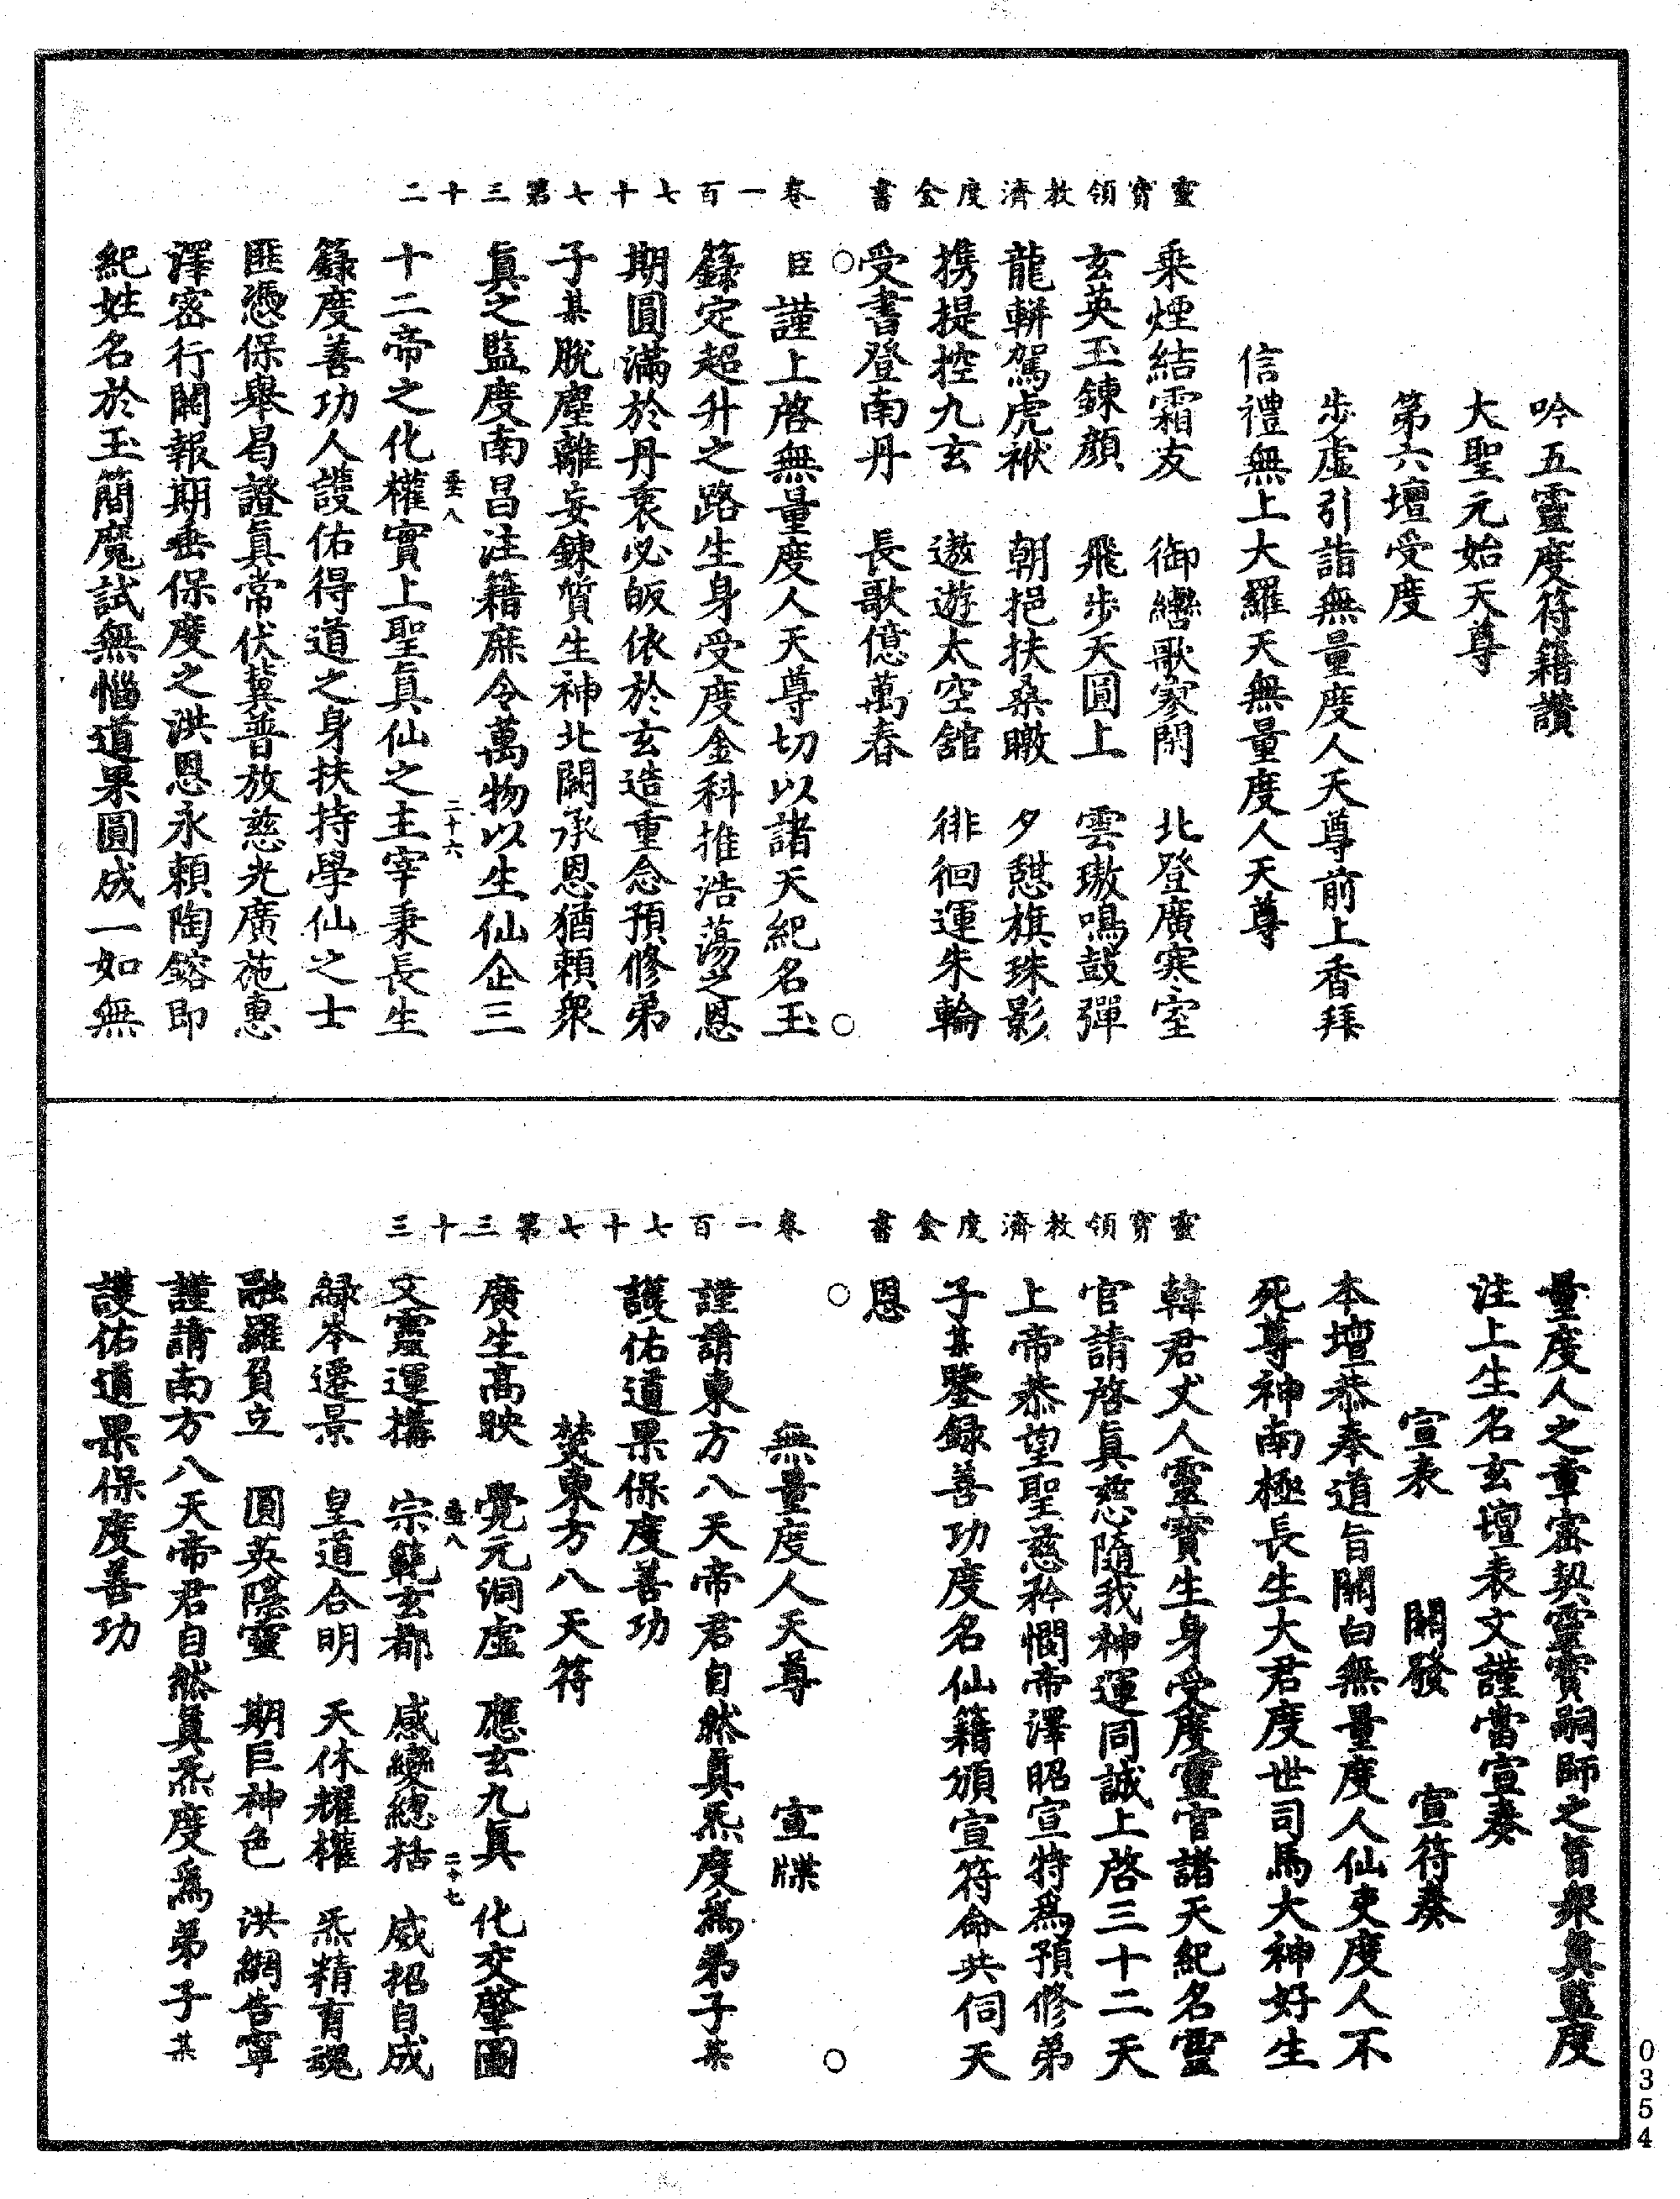 靈寶領教濟度金書　卷一百七十七第三十二
吟五靈度符籍讚
大聖元始天尊
第六壇受度
步虛引詣無量度人天尊前上香拜
信禮無上大羅天無量度人天尊
乗煙結霜友　御轡歌寥閑　北登廣寒室
玄英玉鍊顔　飛步天圓上　雲璈鳴鼓彈
龍輧駕虎袱　朝挹扶桑暾　夕憇旗珠影
携提控九玄　遨遊太空舘　徘徊運朱輪
受書登南丹　長歌億萬春
臣謹上啓無量度人天尊切以諸天紀名玉
籙定超升之路生身受度金科推浩蕩之恩
期圓滿於丹衷必皈依於玄造重念預修弟
子某脫塵離妄鍊質生神北闕承恩猶頼衆
真之監度南昌注籍庶令萬物以生仙企三
十二帝之化權實上聖眞仙之主宰秉長生
籙度善功人護佑得道之身扶持學仙之士
匪憑保舉曷證真常伏冀普放慈光廣施惠
澤密行關報期垂保度之洪恩永頼陶鎔即
紀姓名於玉簡魔試無惱道果圓成一如無
二十六
靈寶領教濟度金書　卷一百七十七第三十三
量度人之章密契靈寶嗣師之旨衆真監度
注上生名玄壇表文謹當宣奏
宣表　關發　宣符奏
本壇恭奉道旨關白無量度人仙吏度人不
死尊神南極長生大君度世司馬大神好生
韓君丈人靈寶生身受度靈官諸天紀名靈
官請啓真慈隨我神運同誠上啓三十二天
上帝恭望聖慈矜憫帝澤昭宣特爲預修弟
子某鑒録善功度名仙籍頒宣符命共伺天
恩
無量度人天尊　宣牒
謹請東方八天帝君自然真炁度爲弟子某
護佑道果保度善功
焚東方八天符
廣生高映　覺元洞虛　應玄九眞　化交肇圖
文靈運搆　宗範玄都　感變總括　威招自成
緑岑遷景　皇道合明　天休耀權　炁精育魂
融羅負立　圓英隱靈　期巨神色　洪網告寧
謹請南方八天帝君自然真炁度爲弟子某
護佑道果保度善功
二十七
0354